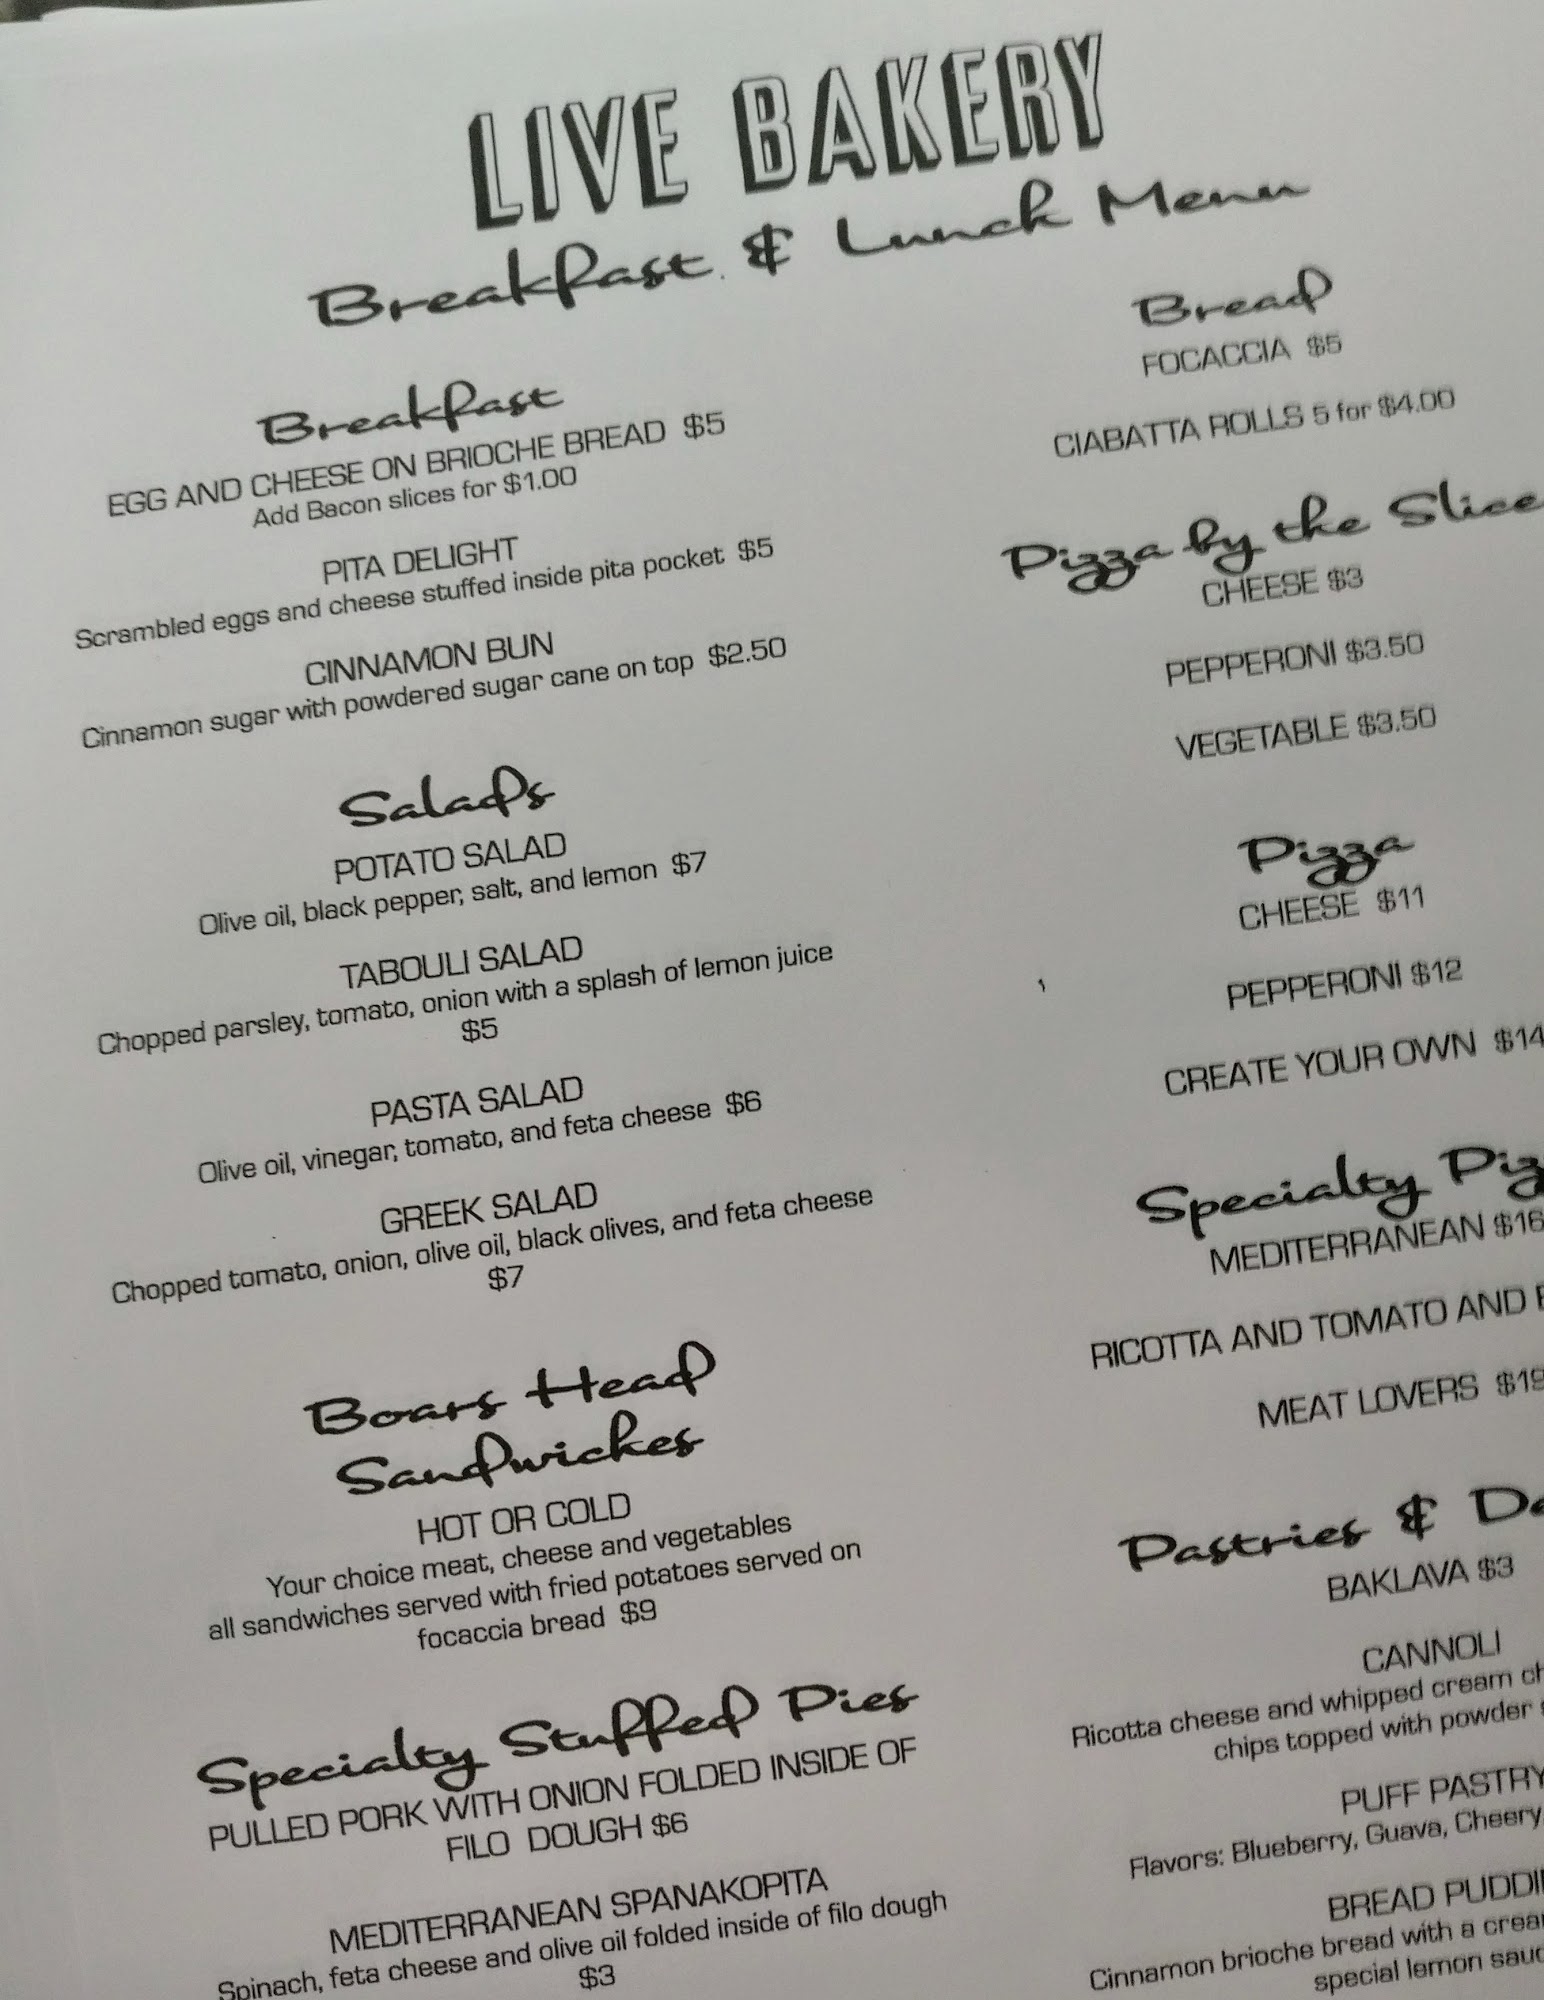 LIVE BAKERY
Breakfast & Lunch Menu
Breakfast
EGG AND CHEESE ON BRIOCHE BREAD $5
Add Bacon slices for $1.00
PITA DELIGHT
Scrambled eggs and cheese stuffed inside pita pocket $5
CINNAMON BUN
Cinnamon sugar with powdered sugar cane on top $2.50
Salads
POTATO SALAD
Olive oil, black pepper, salt, and lemon $7
TABOULI SALAD
Chopped parsley, tomato, onion with a splash of lemon juice
$5
PASTA SALAD
Olive oil, vinegar, tomato, and feta cheese $6
GREEK SALAD
Chopped tomato, onion, olive oil, black olives, and feta cheese
$7
Boars Head
Sandwiches
HOT OR COLD
Your choice meat, cheese and vegetables
all sandwiches served with fried potatoes served on
focaccia bread $9
Specialty Stuffed Pies
PULLED PORK WITH ONION FOLDED INSIDE OF
FILO DOUGH $6
MEDITERRANEAN SPANAKOPITA
Spinach, feta cheese and olive oil folded inside of filo dough
$3
Bread
FOCACCIA $5
CIABATTA ROLLS 5 for $4.00
Pizza by the Slice
CHEESE $3
PEPPERONI $3.50
VEGETABLE $3.50
Pizza
CHEESE $11
PEPPERONI $12
CREATE YOUR OWN $14
Specialty
MEDITERRANEAN $16
RICOTTA AND TOMATO AND
MEAT LOVERS $19
Pastries &
BAKLAVA $3
CANNOLI
Ricotta cheese and whipped cream
chips topped with powder
PUFF PASTRY
Flavors: Blueberry, Guava, Cheery,
BREAD
Cinnamon brioche bread with a
special lemon